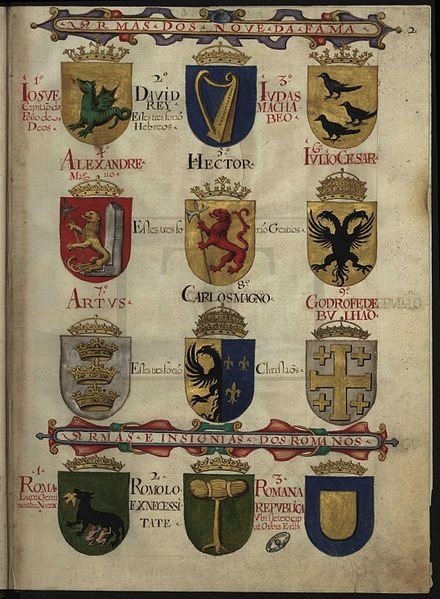 ARMAS DOS NOVE DA FAMA
2
1º
IOSVE
Capitão do
Povo de
Deos
2º
DAVID
REY
Estes tres forão
Hebreos
3º
IVDAS
MACHA
BEO
4º
ALEXANDRE
Magno
5º
HECTOR
6º
IVLIO CESAR
Estes tres fo
rão Gentios
7º
ARTVS
8º
CARLOS MAGNO
9º
GODROFE DE
BVLHAO
Estes tres forão
Christãos
ARMAS E INSIGNIAS DOS ROMANOS
1.
ROMA
2.
ROMOLO
EX NECESSI
TATE
3.
ROMANA
REPVBLICA